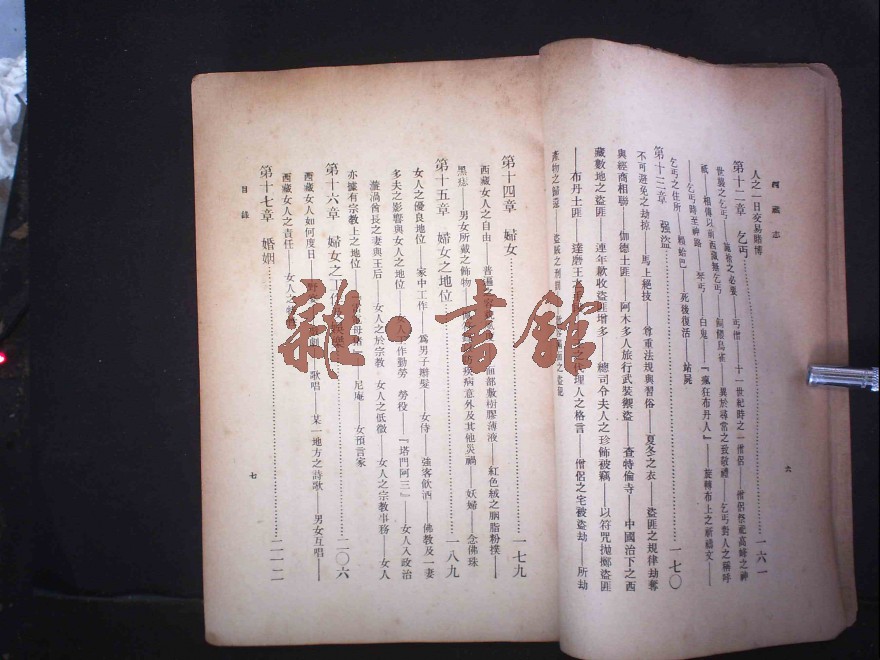 西藏志
人之一日交易賭博
第十二章 乞丐……一六一
世襲之乞丐——施捨之必要 丐僧——十一世紀時之一僧侶——僧侶祭祀高峰之神
祇——相傳以前西藏無乞丐 飼餵烏雀 異於尋常之致敬禮——乞丐對人之稱呼
——乞丐時至神路——琴丐——白鬼——『瘋狂布丹人』——旋轉布上之祈禱文——
乞丐之住所——賴給巴——死後復活——站屍
第十三章 强盜……一七〇
不可避免之劫掠——馬上絕技——尊重法規與習俗——夏冬之衣——盜匪之規律劫奪
與經商相聯——伽德土匪——阿木多人旅行武裝禦盜——查特倫寺——中國治下之西
藏數地之盜匪——連年歉收盜匪增多——總司令夫人之珍飾被竊——以符咒拋擲盜匪
——布丹土匪——達磨王 理人之格言——僧侶之宅被盜劫——所劫
產物之歸還——盜賊之刑罰
六
第十四章 婦女……一七九
西藏女人之自由——普遍 面部敷樹膠薄液——紅色絨之胭脂粉撲——
黑痣——男女所戴之飾物 疾病意外及其他災禍——妖婦——念佛珠
第十五章 婦女之地位……一八九
女人之優良地位——家中工作——爲男子辮髮——女侍——強客飲酒——佛教及一妻
多夫之影響與女人之地位 作勤勞 勞役——『塔門阿三』——女人入政治
漩渦酋長之妻與王后——女人之於宗教 女人之低微——女人之宗教事務——女人
亦據有宗教上之地位 尼庵——女預言家
第十六章 婦女之 二〇六
西藏女人如何度日 歌唱——某一地方之詩歌——男女互唱——
西藏女人之責任——女人之
第十七章 婚姻……二一二
目錄
七
雜·書館